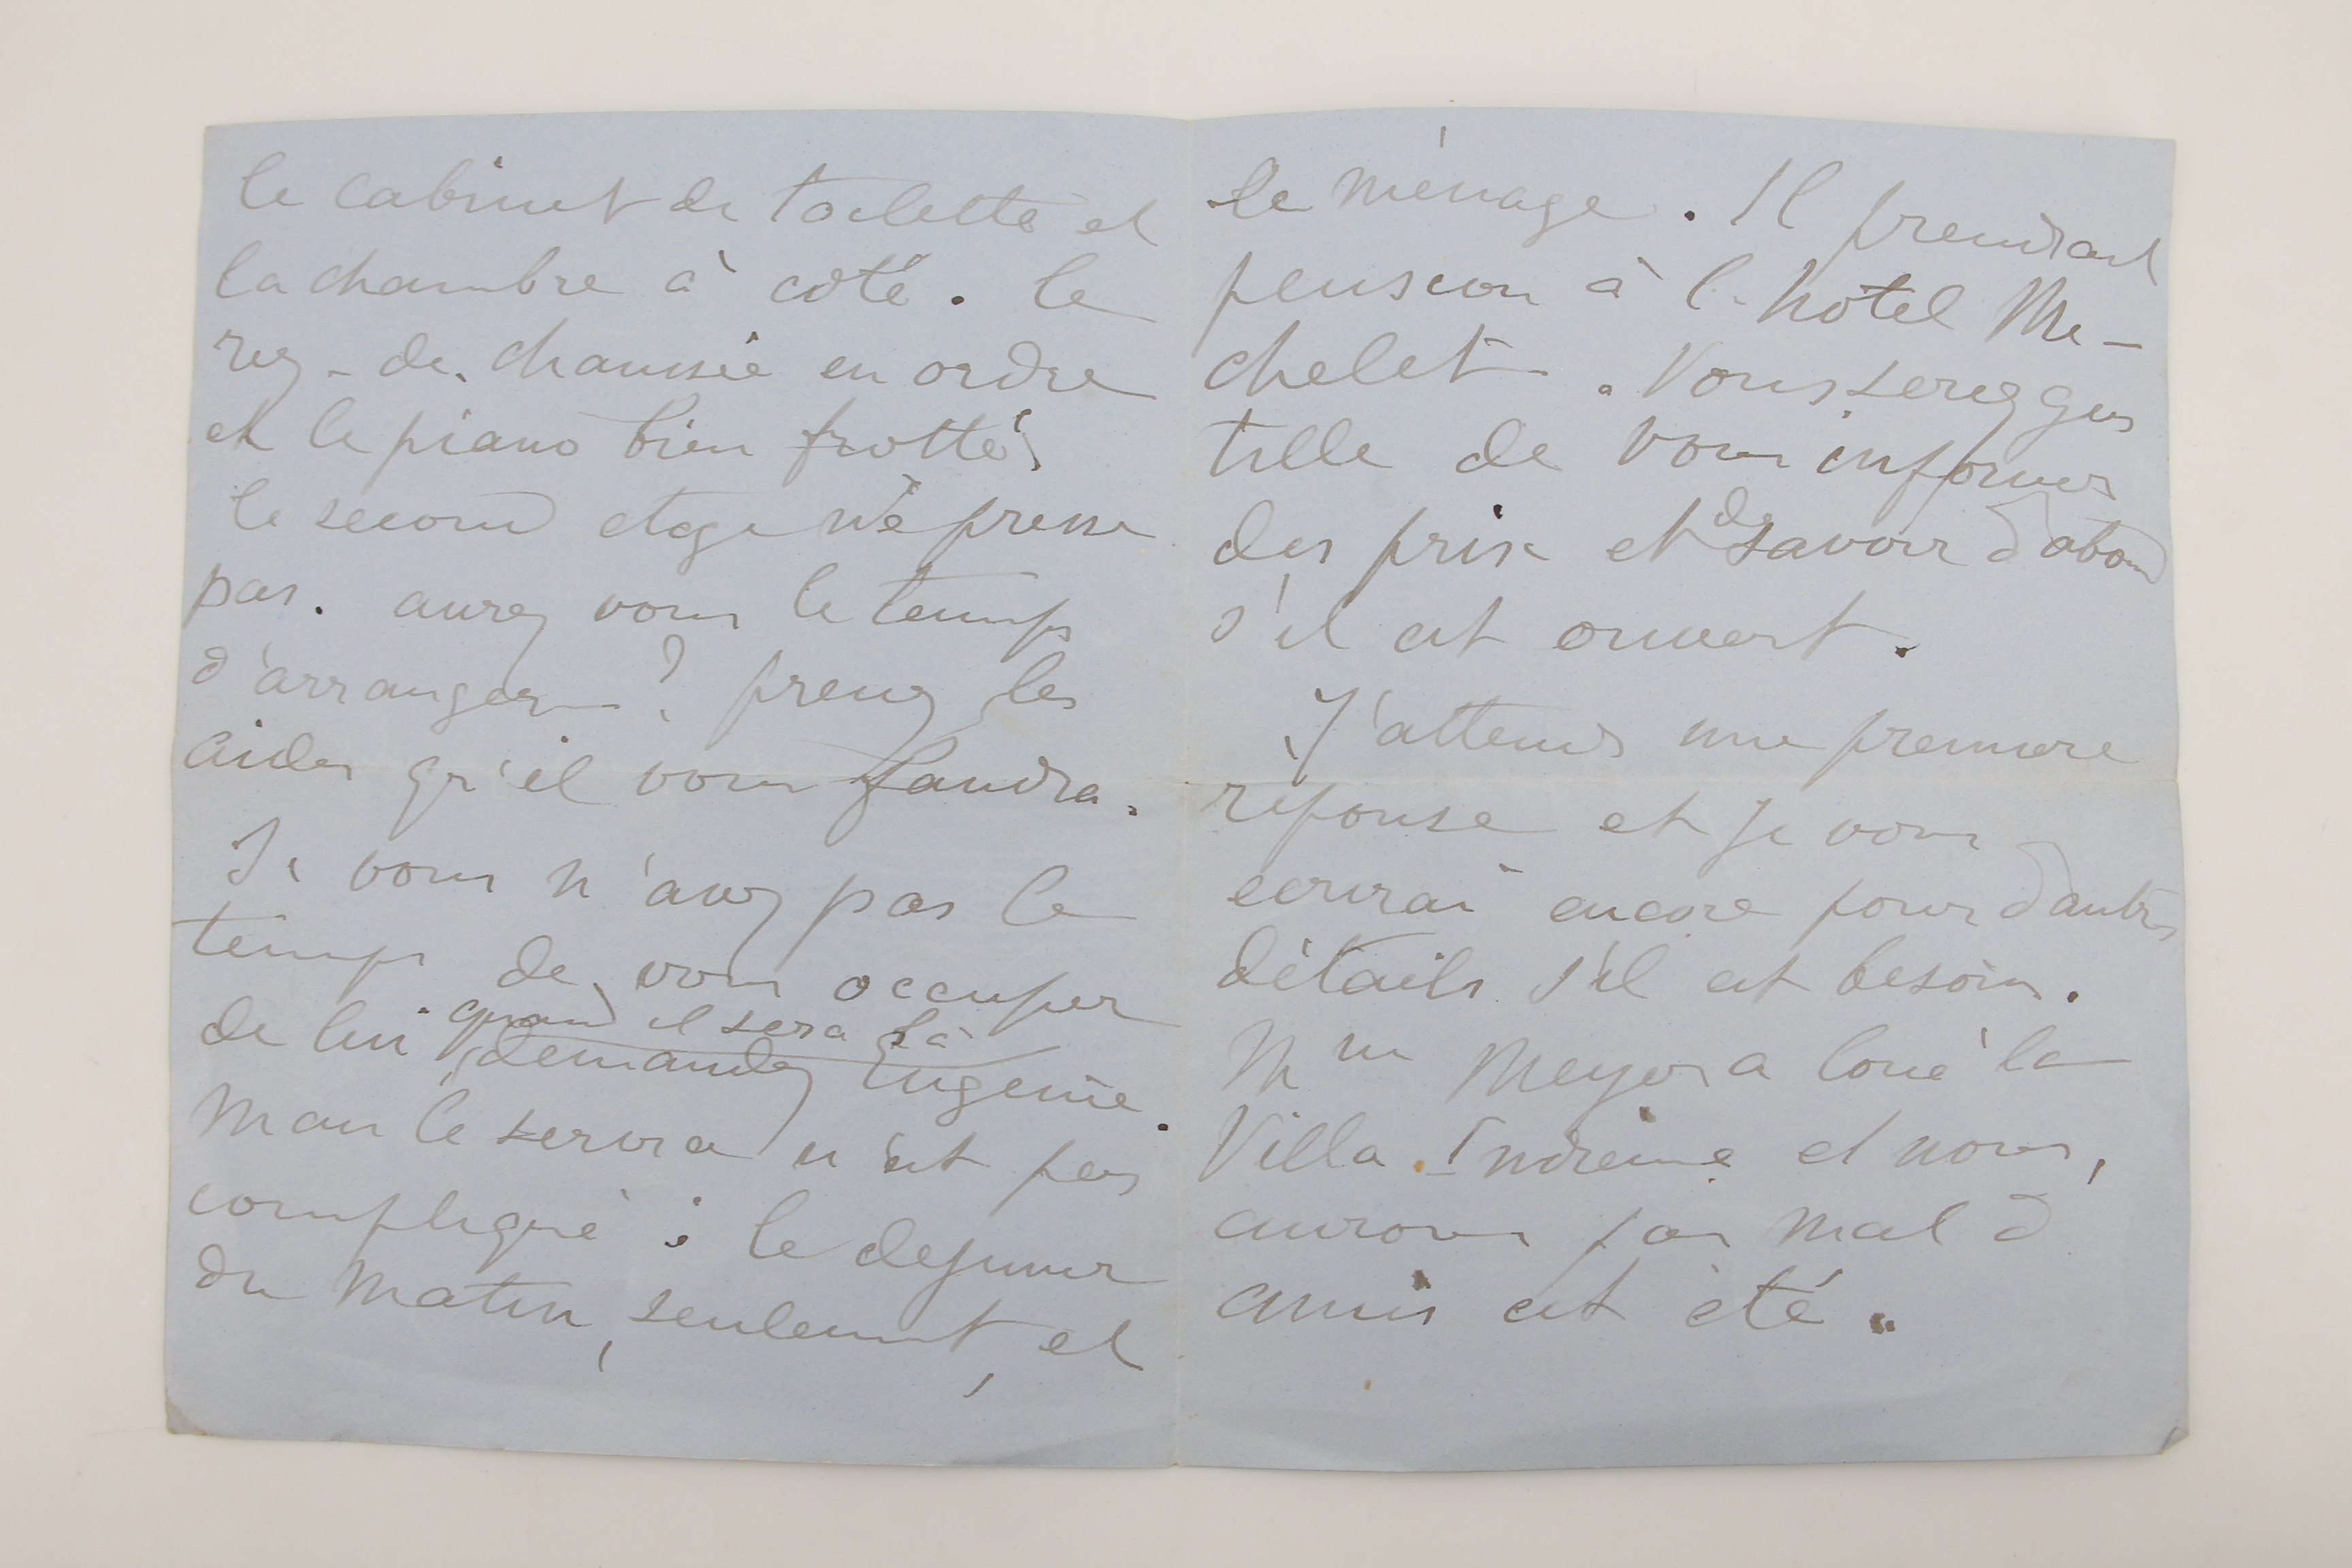 le cabinet de toilette et
la chambre à coté. le
rez-de-chaussée en ordre
et le piano bien frotté,
le second etage n'e presse
pas. aurez vous le temps
d'arranger ? prenez les
aides qu'il vous faudra.
Si vous n'avez pas le
temps de vous occuper
de lui quand il sera là
demandez Eugenie.
Mais le service n'est pas
compliqué : le dejeuner
du matin, seulement, et
le ménage. Il prendrait
pension à l'hotel Mi-
chelet. Vous serez gen
tille de vous informer
des prix et de savoir d'abord
s'il est ouvert.
J'attends une premiere
réponse et je vous
ecrirai encore pour d'autres
détails s'il est besoin.
Mme Meyer a loué la
Villa et nous,
aurons pas mal d'
amis cet été.